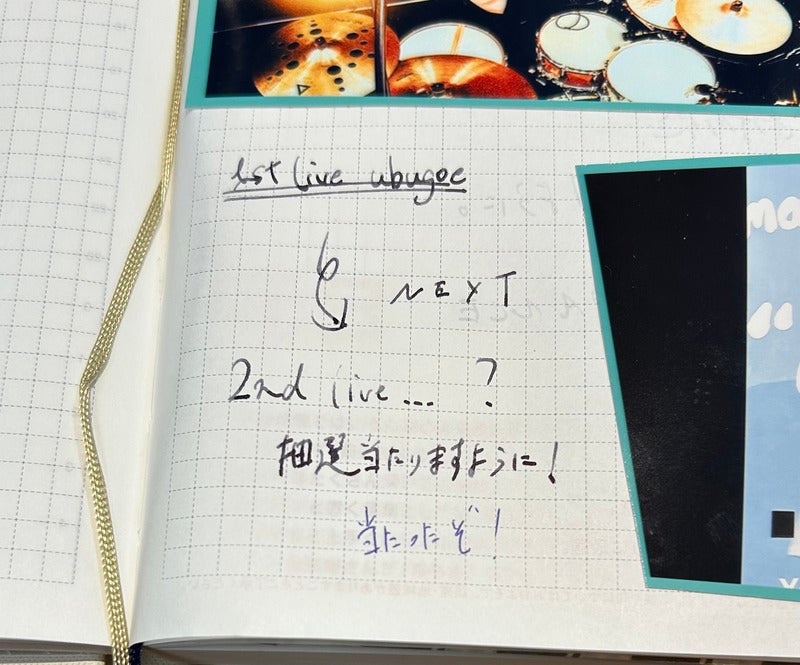 1st live ubugoe
NEXT
2nd live...?
抽選当たりますように!
当たったぞ!
MO